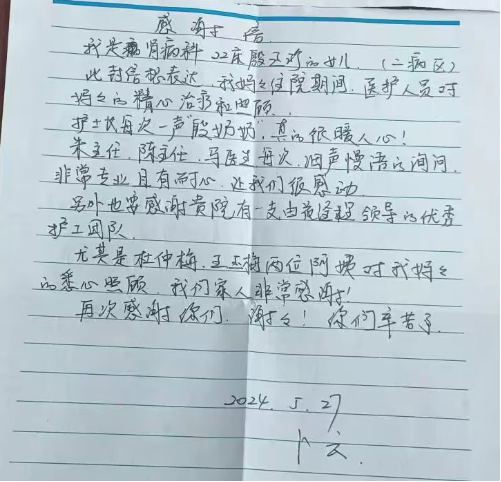 感谢信
我是肾病科22床殷玉珍的女儿.(二病区)
此封信想表达,我妈妈住院期间,医护人员对
妈妈的精心治疗和照顾.
护士长每次一声"殷奶奶",真的很暖人心!
朱主任,陈主任,马医生每次,细声慢语的询问,
非常专业且有耐心,让我们很感动.
另外也要感谢贵院,有一支由领导的优秀
护工团队.
尤其是杜仲梅,王玉梅两位阿姨对我妈妈
的悉心照顾,我们家人非常感谢!
再次感谢你们,谢谢!你们辛苦了.
2024.5.27
卜云